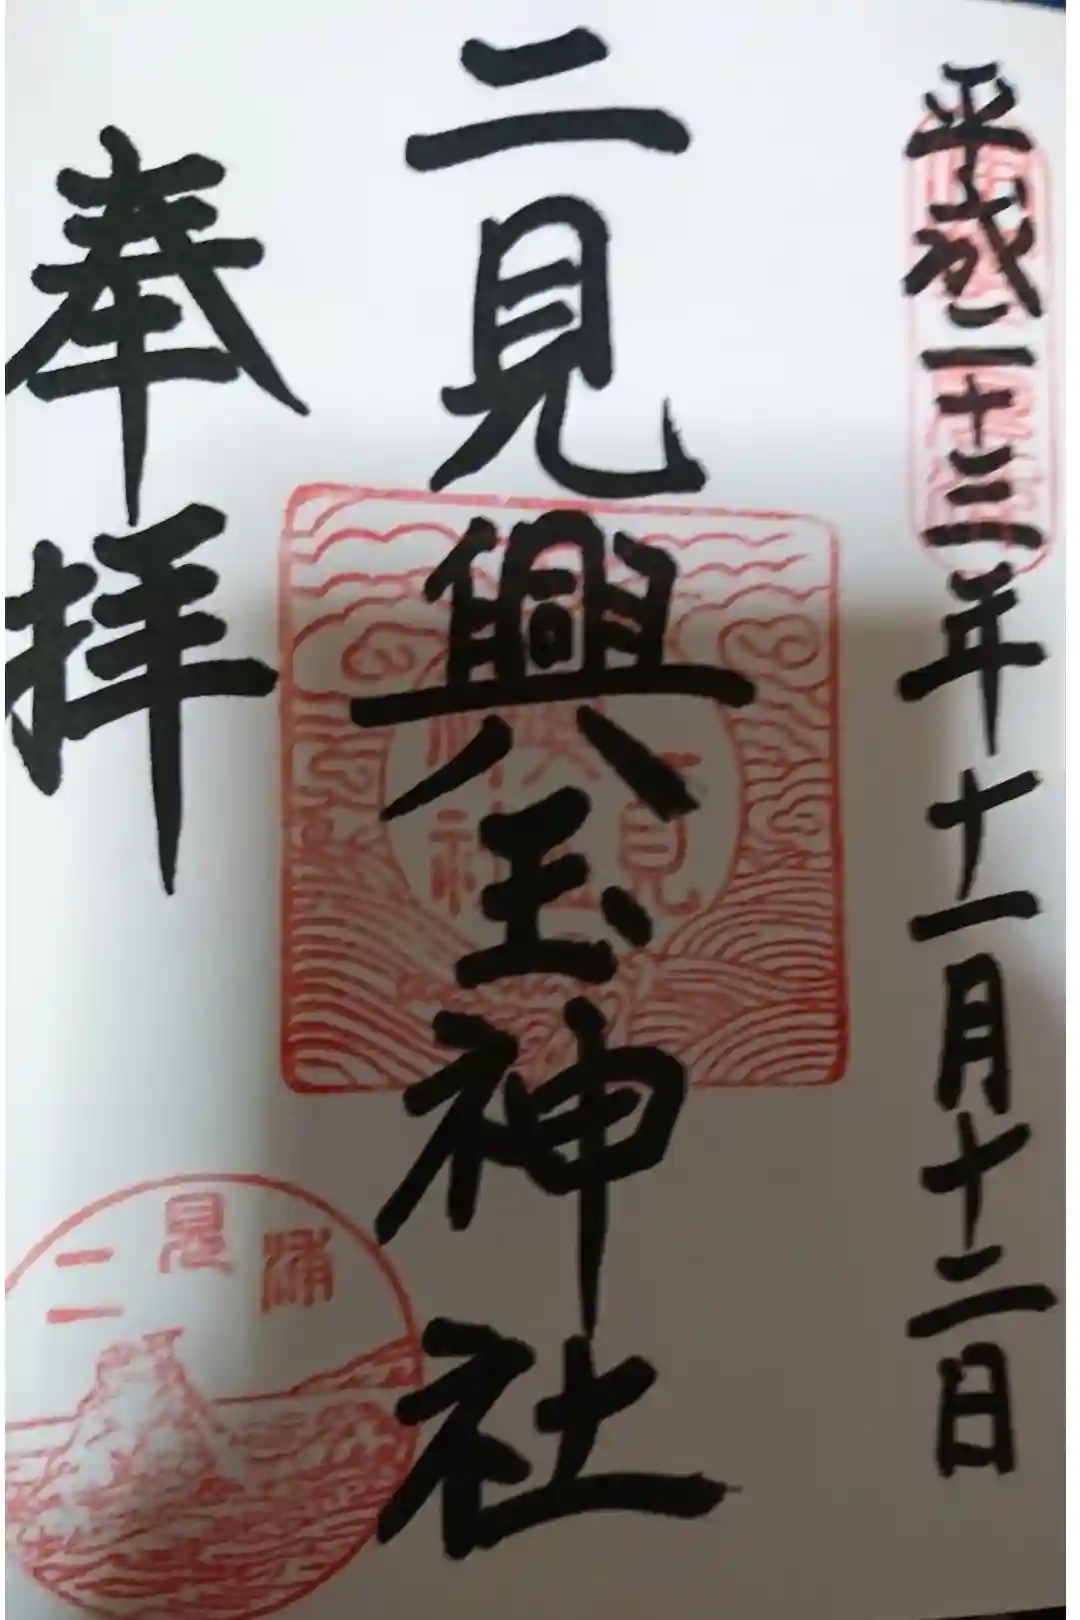 平成二十三年十一月十二日
二見興玉神社
奉拝
二見
神社
二見浦